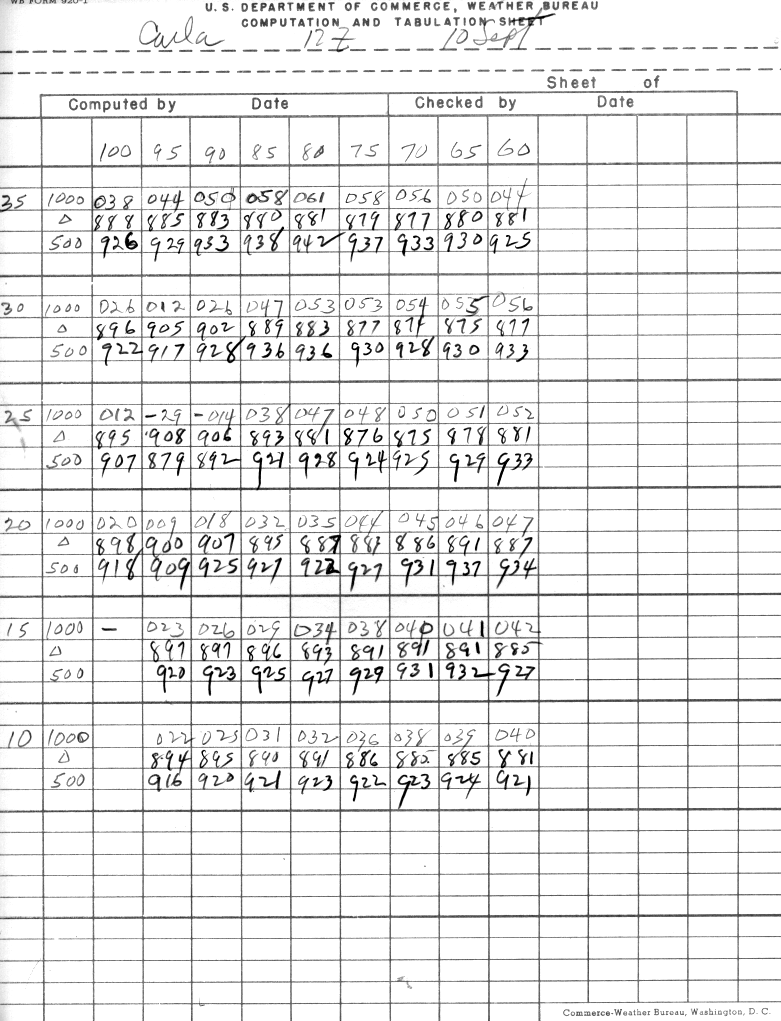 WB FORM 920-1
U.S. DEPARTMENT OF COMMERCE, WEATHER BUREAU
COMPUTATION AND TABULATION SHEET
Carla 12Z 10 Sept
Sheet of
Computed by Date Checked by Date
100 95 90 85 80 75 70 65 60
35 1000 038 044 050 058 061 058 056 050 044
Δ 888 885 883 880 881 879 877 880 881
500 926 929 933 938 942 937 933 930 925
30 1000 026 012 026 047 053 053 054 055 056
Δ 896 905 902 889 883 877 874 875 877
500 922 917 928 936 936 930 928 930 933
25 1000 012 -29 -014 038 047 048 050 051 052
Δ 895 908 906 893 881 876 875 878 881
500 907 879 892 921 928 924 925 929 933
20 1000 020 009 018 032 035 044 045 046 047
Δ 898 900 907 895 887 883 886 891 887
500 918 909 925 927 922 927 931 937 934
15 1000 - 023 026 029 034 038 040 041 042
Δ 897 897 896 893 891 891 891 885
500 920 923 925 927 929 931 932 927
10 1000 022 025 031 032 036 038 039 040
Δ 894 895 890 891 886 885 885 881
500 916 920 921 923 922 923 924 921
Commerce-Weather Bureau, Washington, D. C.